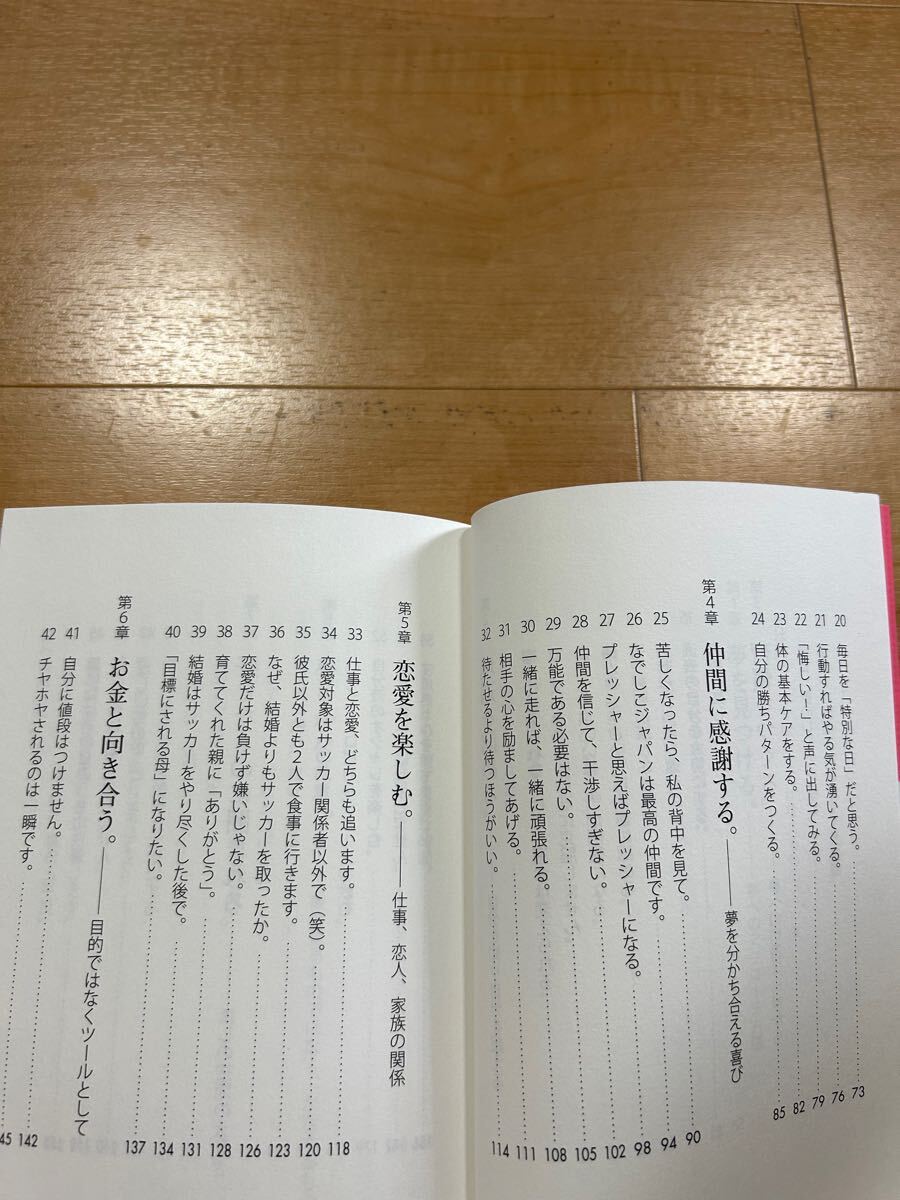 20 毎日を「特別な日」だと思う。 73
21 行動すればやる気が湧いてくる。 76
22 「悔しい！」と声に出してみる。 79
23 体の基本ケアをする。 82
24 自分の勝ちパターンをつくる。 85
第4章 仲間に感謝する。――夢を分かち合える喜び
25 苦しくなったら、私の背中を見て。 90
26 なでしこジャパンは最高の仲間です。 94
27 プレッシャーと思えばプレッシャーになる。 98
28 仲間を信じて、干渉しすぎない。 102
29 万能である必要はない。 105
30 一緒に走れば、一緒に頑張れる。 108
31 相手の心を励ましてあげる。 111
32 待たせるより待つほうがいい。 114
第5章 恋愛を楽しむ。――仕事、恋人、家族の関係
33 仕事と恋愛、どちらも追います。 118
34 恋愛対象はサッカー関係者以外で（笑）。 120
35 彼氏以外とも2人で食事に行きます。 123
36 なぜ、結婚よりもサッカーを取ったか。 126
37 恋愛だけは負けず嫌いじゃない。 128
38 育ててくれた親に「ありがとう」。 131
39 結婚はサッカーをやり尽くした後で。 134
40 「目標にされる母」になりたい。 137
第6章 お金と向き合う。――目的ではなくツールとして
41 自分に値段はつけません。 142
42 チヤホヤされるのは一瞬です。 45